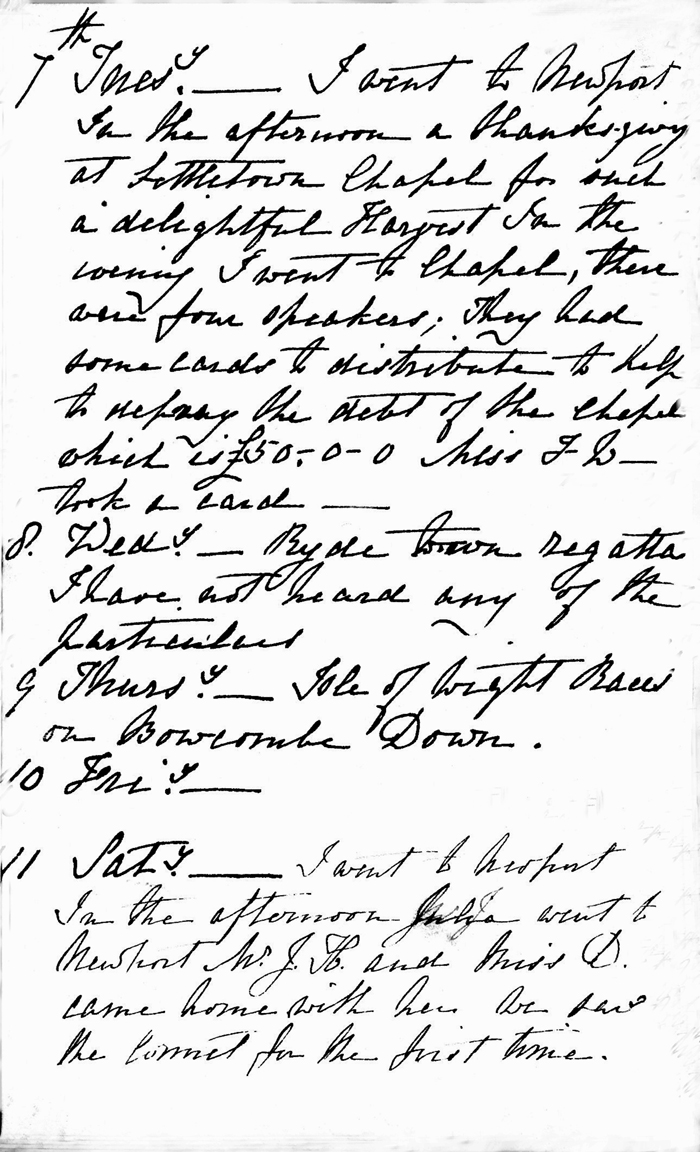 7th Tuesy. — I went to Newport
In the afternoon a thanksgiving
at Littletown Chapel for such
a delightful Harvest In the
evening I went to Chapel, there
were four speakers; They had
some cards to distribute to help
to defray the debt of the Chapel
which is £50-0-0 Miss F W—
took a card —
8. Wedy. — Ryde town regatta
I have not heard any of the
particulars
9 Thursy. — Isle of Wight Races
on Bowcombe Down.
10 Friy. —
11 Saty. — I went to Newport
In the afternoon Julia went to
Newport Mr. J. H. and Miss D.
came home with her we saw
the Commet for the first time.